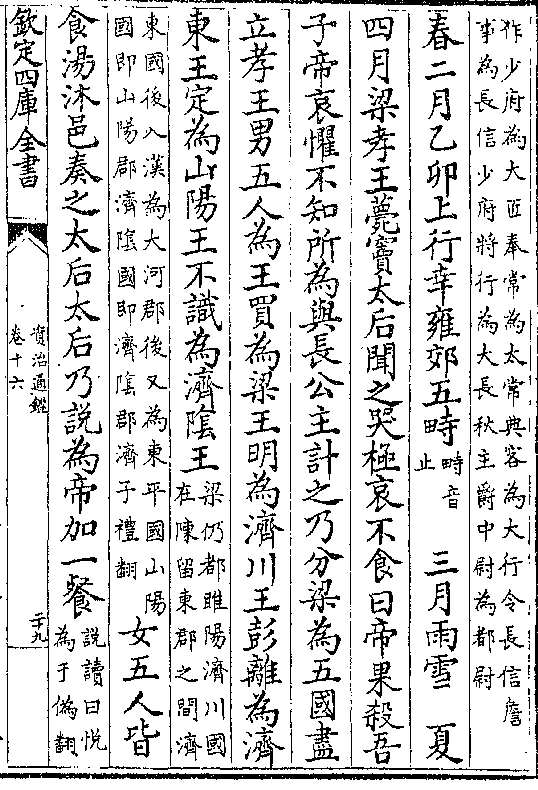 作少府為大匠奉常為太常典客為大行令長信詹
事為長信少府將行為大長秋主爵中尉為都尉
春二月乙卯上行幸雍郊五畤畤音止　三月雨雪　夏
四月梁孝王薨竇太后聞之哭極哀不食曰帝果殺吾
子帝哀懼不知所為與長公主計之乃分梁為五國盡
立孝王男五人為王買為梁王明為濟川王彭離為濟
東王定為山陽王不識為濟陰王梁仍都睢陽濟川國在陳留東郡之間濟
東國後入漢為大河郡後又為東平國山陽國即山陽郡濟陰國即濟陰郡濟子禮翻女五人皆
食湯沐邑奏之太后太后乃說為帝加一餐說讀曰悅為于偽翻
欽定四庫全書
資治通鑑
卷十六
二十九